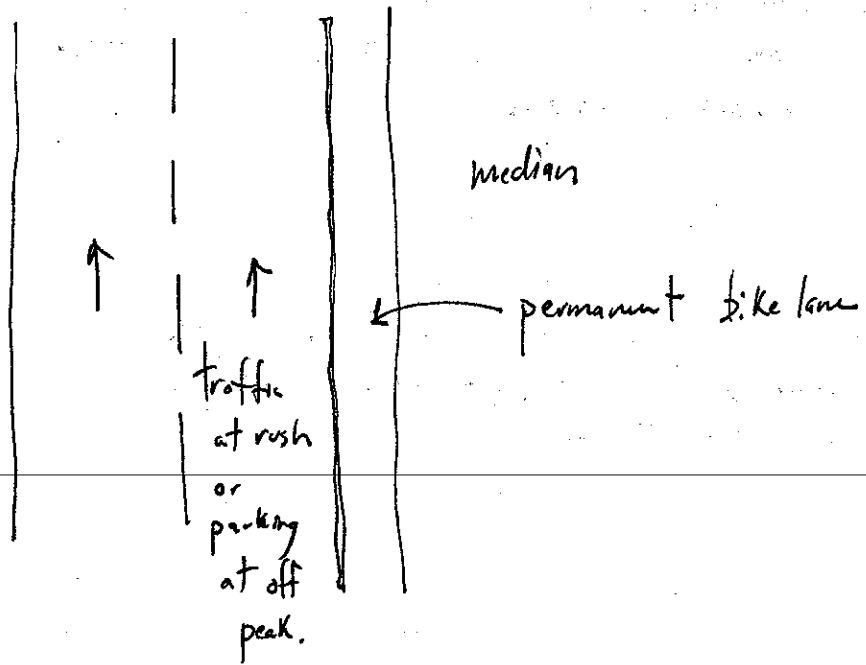 median
permanent bike lane
traffic
at rush
or
parking
at off
peak.